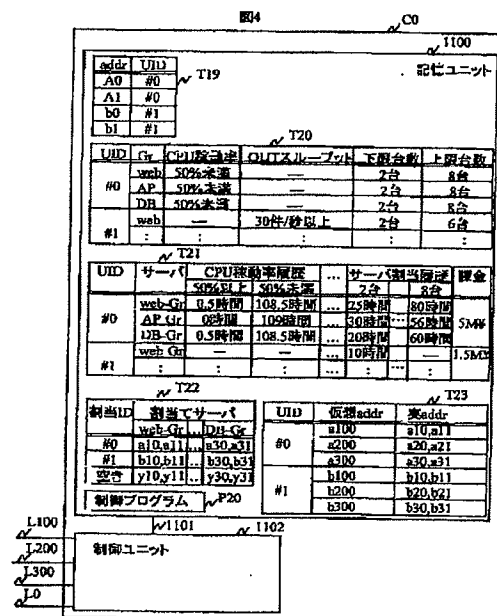 図4
C0
1100
記憶ユニット
T19
addr UID
A0 #0
A1 #0
b0 #1
b1 #1
T20
UID Gr CPU稼動率 OUTスループット 下限台数 上限台数
#0 web 50%未満 — 2台 8台
AP 50%未満 — 2台 8台
DB 50%未満 — 2台 8台
#1 web — 30件/秒以上 2台 6台
: : : : :
T21
UID サーバ CPU稼動率履歴 … サーバ割当履歴 課金
50%以上 50%未満 2台 8台
#0 web-Gr 0.5時間 108.5時間 … 25時間 … 80時間 5M¥
AP-Gr 0時間 109時間 … 30時間 … 56時間
DB-Gr 0.5時間 108.5時間 … 20時間 60時間
#1 web Gr — — … 10時間 — 1.5M¥
: : : … : … : :
T22
割当ID 割当てサーバ
web-Gr … DB-Gr
#0 a10,a11 … a30,a31
#1 b10,b11 … b30,b31
空き y10,y11 … y30,y31
T23
UID 仮想addr 実addr
#0 a100 a10,a11
a200 a20,a21
a300 a30,a31
#1 b100 b10,b11
b200 b20,b21
b300 b30,b31
制御プログラム P20
1101 1102
制御ユニット
L100
L200
L300
L0